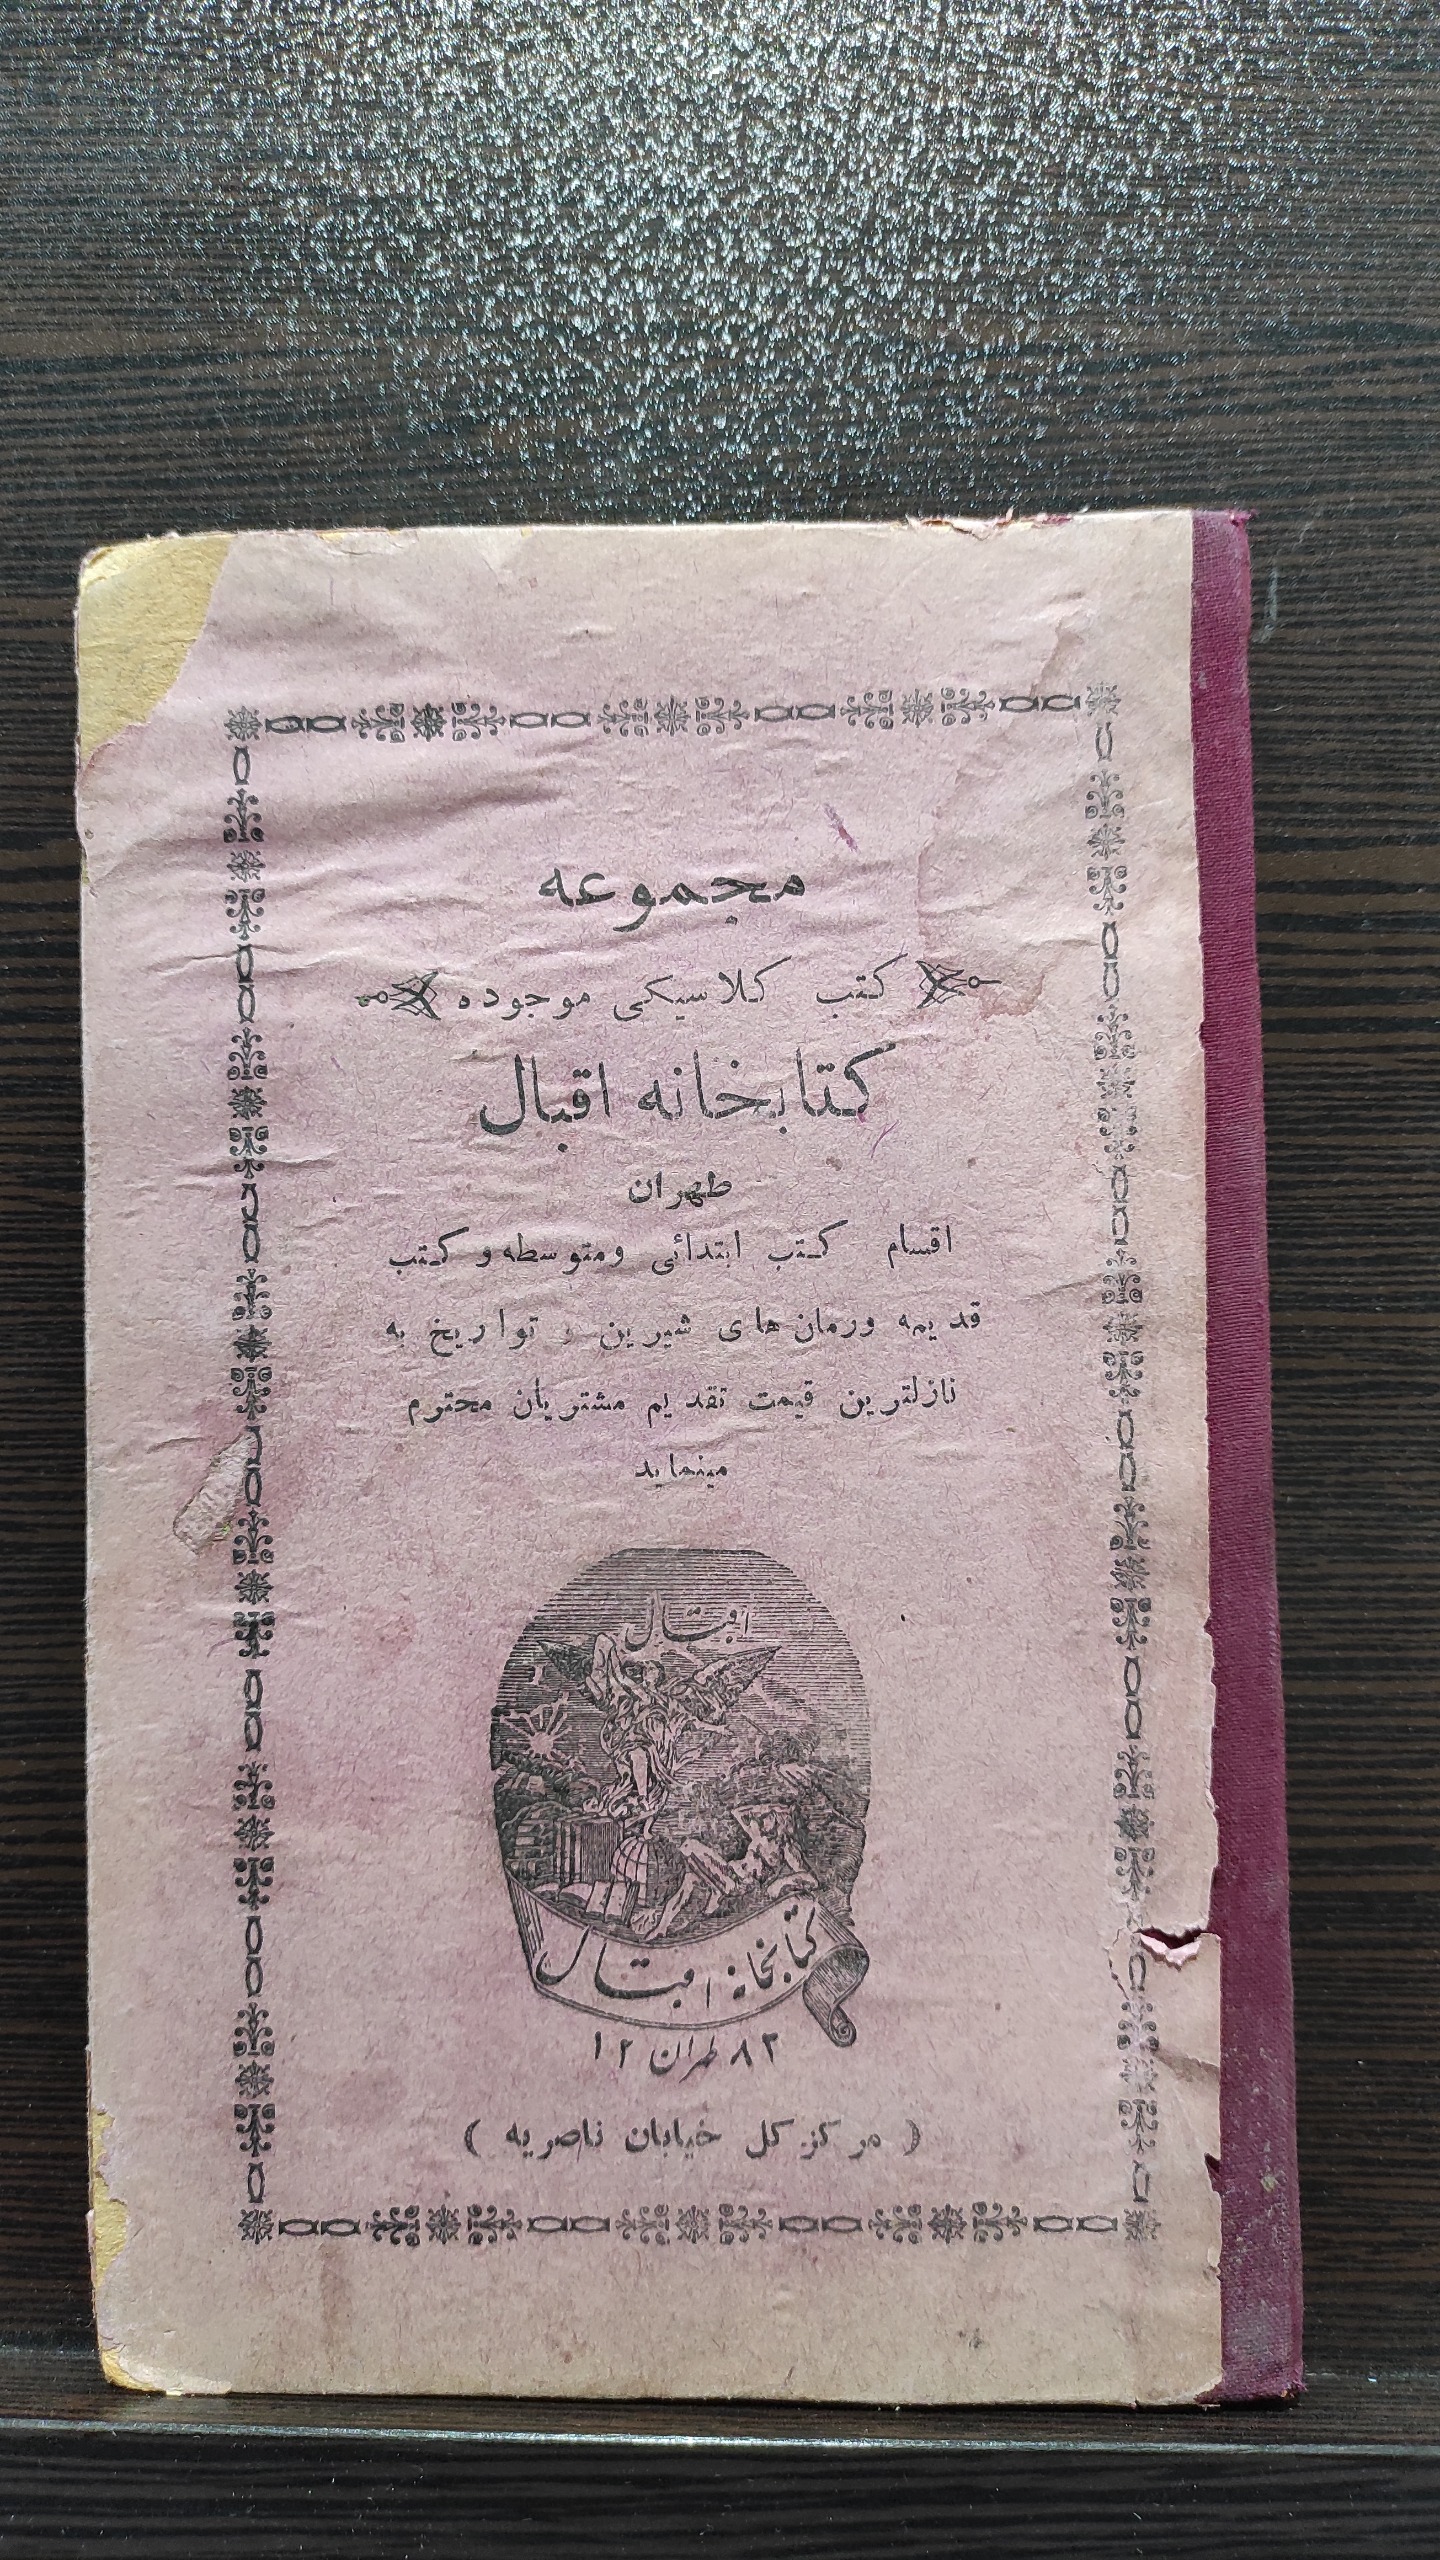 مجموعه
کتب کلاسیکی موجوده
کتابخانه اقبال
طهران
اقسام کتب ابتدائی ومتوسطه و کتب
قدیمه ورمان های شیرین و تواریخ به
نازلترین قیمت تقدیم مشتریان محترم
مینماید
اقبال
کتابخانه اقبال
۱۲ طهران ۸۲
( مرکز کل خیابان ناصریه )